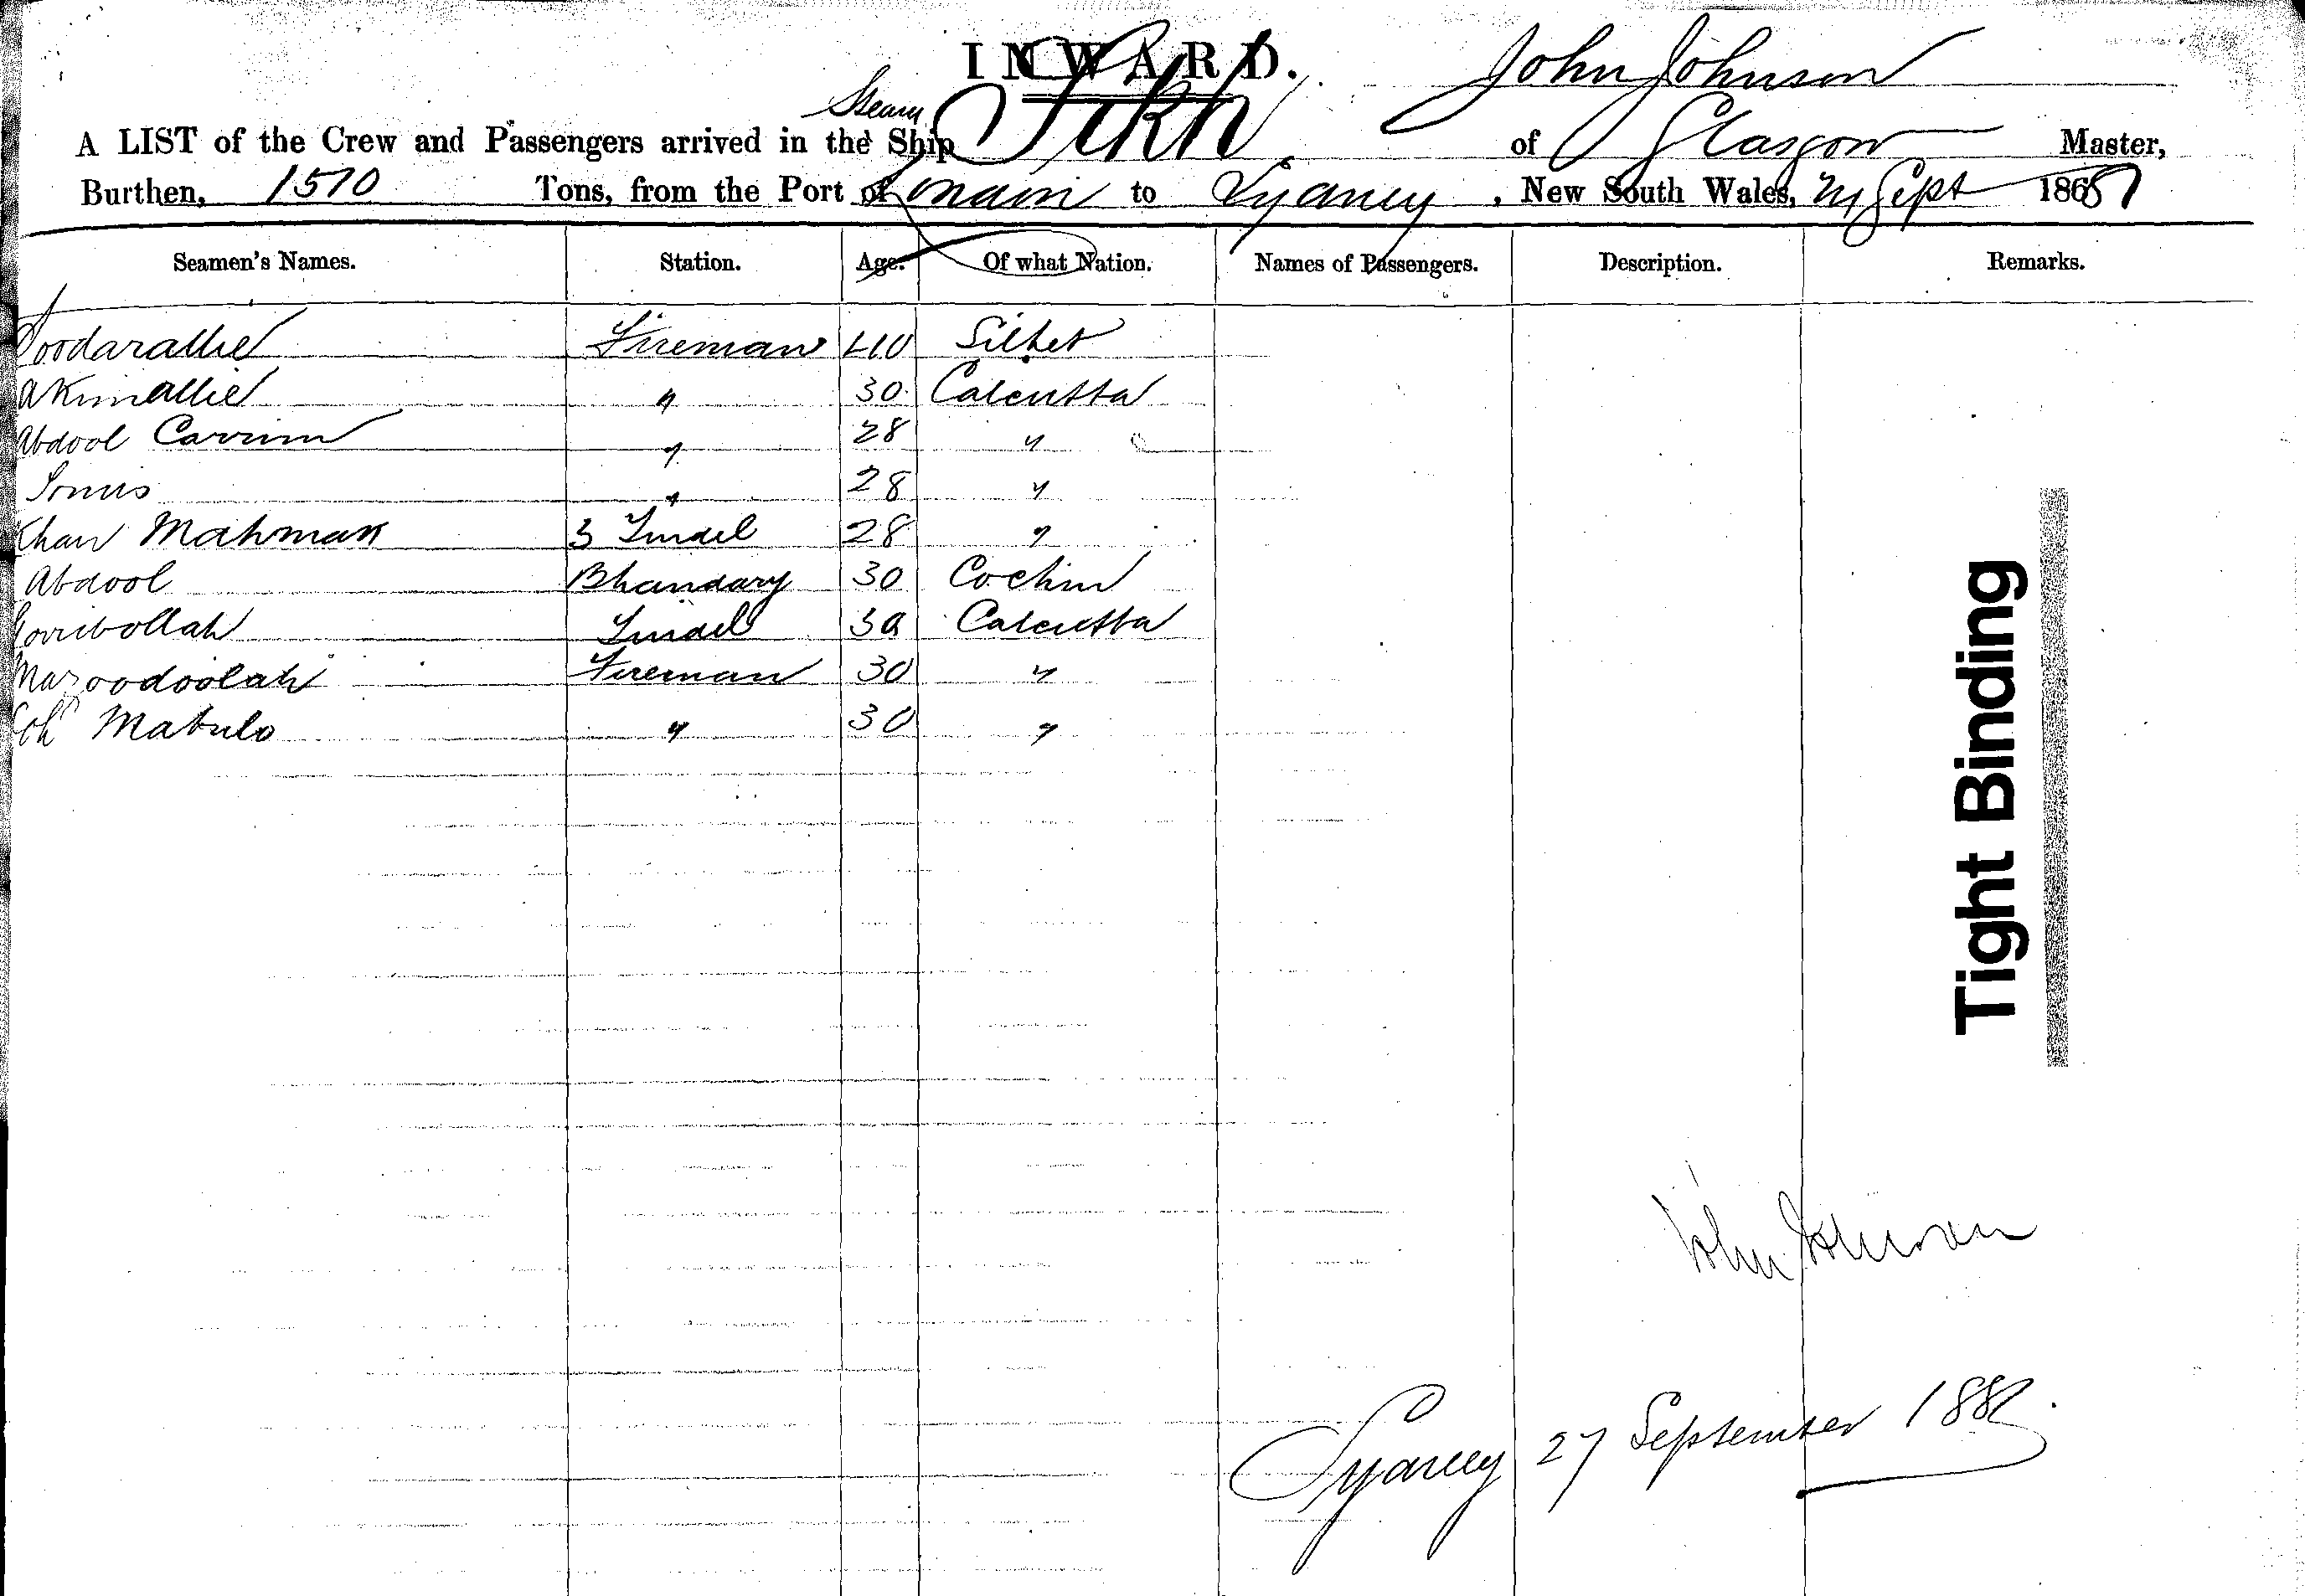 INWARD.
John Johnson
Steam
A LIST of the Crew and Passengers arrived in the Ship Sikh of Glasgow Master,
Burthen, 1570 Tons, from the Port of to Sydney, New South Wales, 27 Sept 188
Seamen's Names. Station. Age. Of what Nation. Names of Passengers. Description. Remarks.
Fireman 40 Silhet
akimallie " 30 Calcutta
Abdool Carrim " 28 "
" 28 "
Khan 3 Tindel 28 "
Abdool Bhandary 30 Cochin
Tindel 30 Calcutta
Fireman 30 "
Mabulo " 30 "
Tight Binding
John Johnson
Sydney 27 September 188